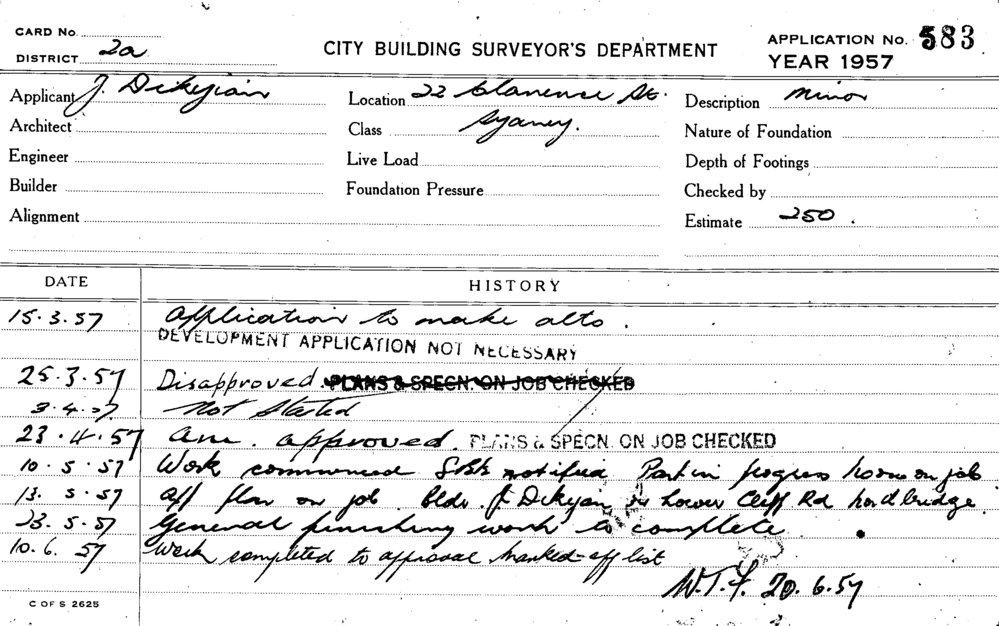 CARD No.
DISTRICT 2a
CITY BUILDING SURVEYOR'S DEPARTMENT
APPLICATION No. 583
YEAR 1957
Applicant J. Dikyian
Location 22 Clarence St.
Description Minor
Architect
Class Sydney.
Nature of Foundation
Engineer
Live Load
Depth of Footings
Builder
Foundation Pressure
Checked by
Alignment
Estimate 250.
DATE
HISTORY
15.3.57 Application to make alts.
DEVELOPMENT APPLICATION NOT NECESSARY
25.3.57 Disapproved. PLANS & SPECN. ON JOB CHECKED
3.4.57 Not Started
23.4.57 Am. approved. PLANS & SPECN. ON JOB CHECKED
10.5.57 Work commenced notified Part in progress on job
13.5.57 App plan on job. Bldr J. Dikyan Lower Cliff Rd Nordbridge.
23.5.57 General finishing work to complete
10.6.57 Work completed to approval marked-off list
W.T.F. 20.6.57
C OF S 2625